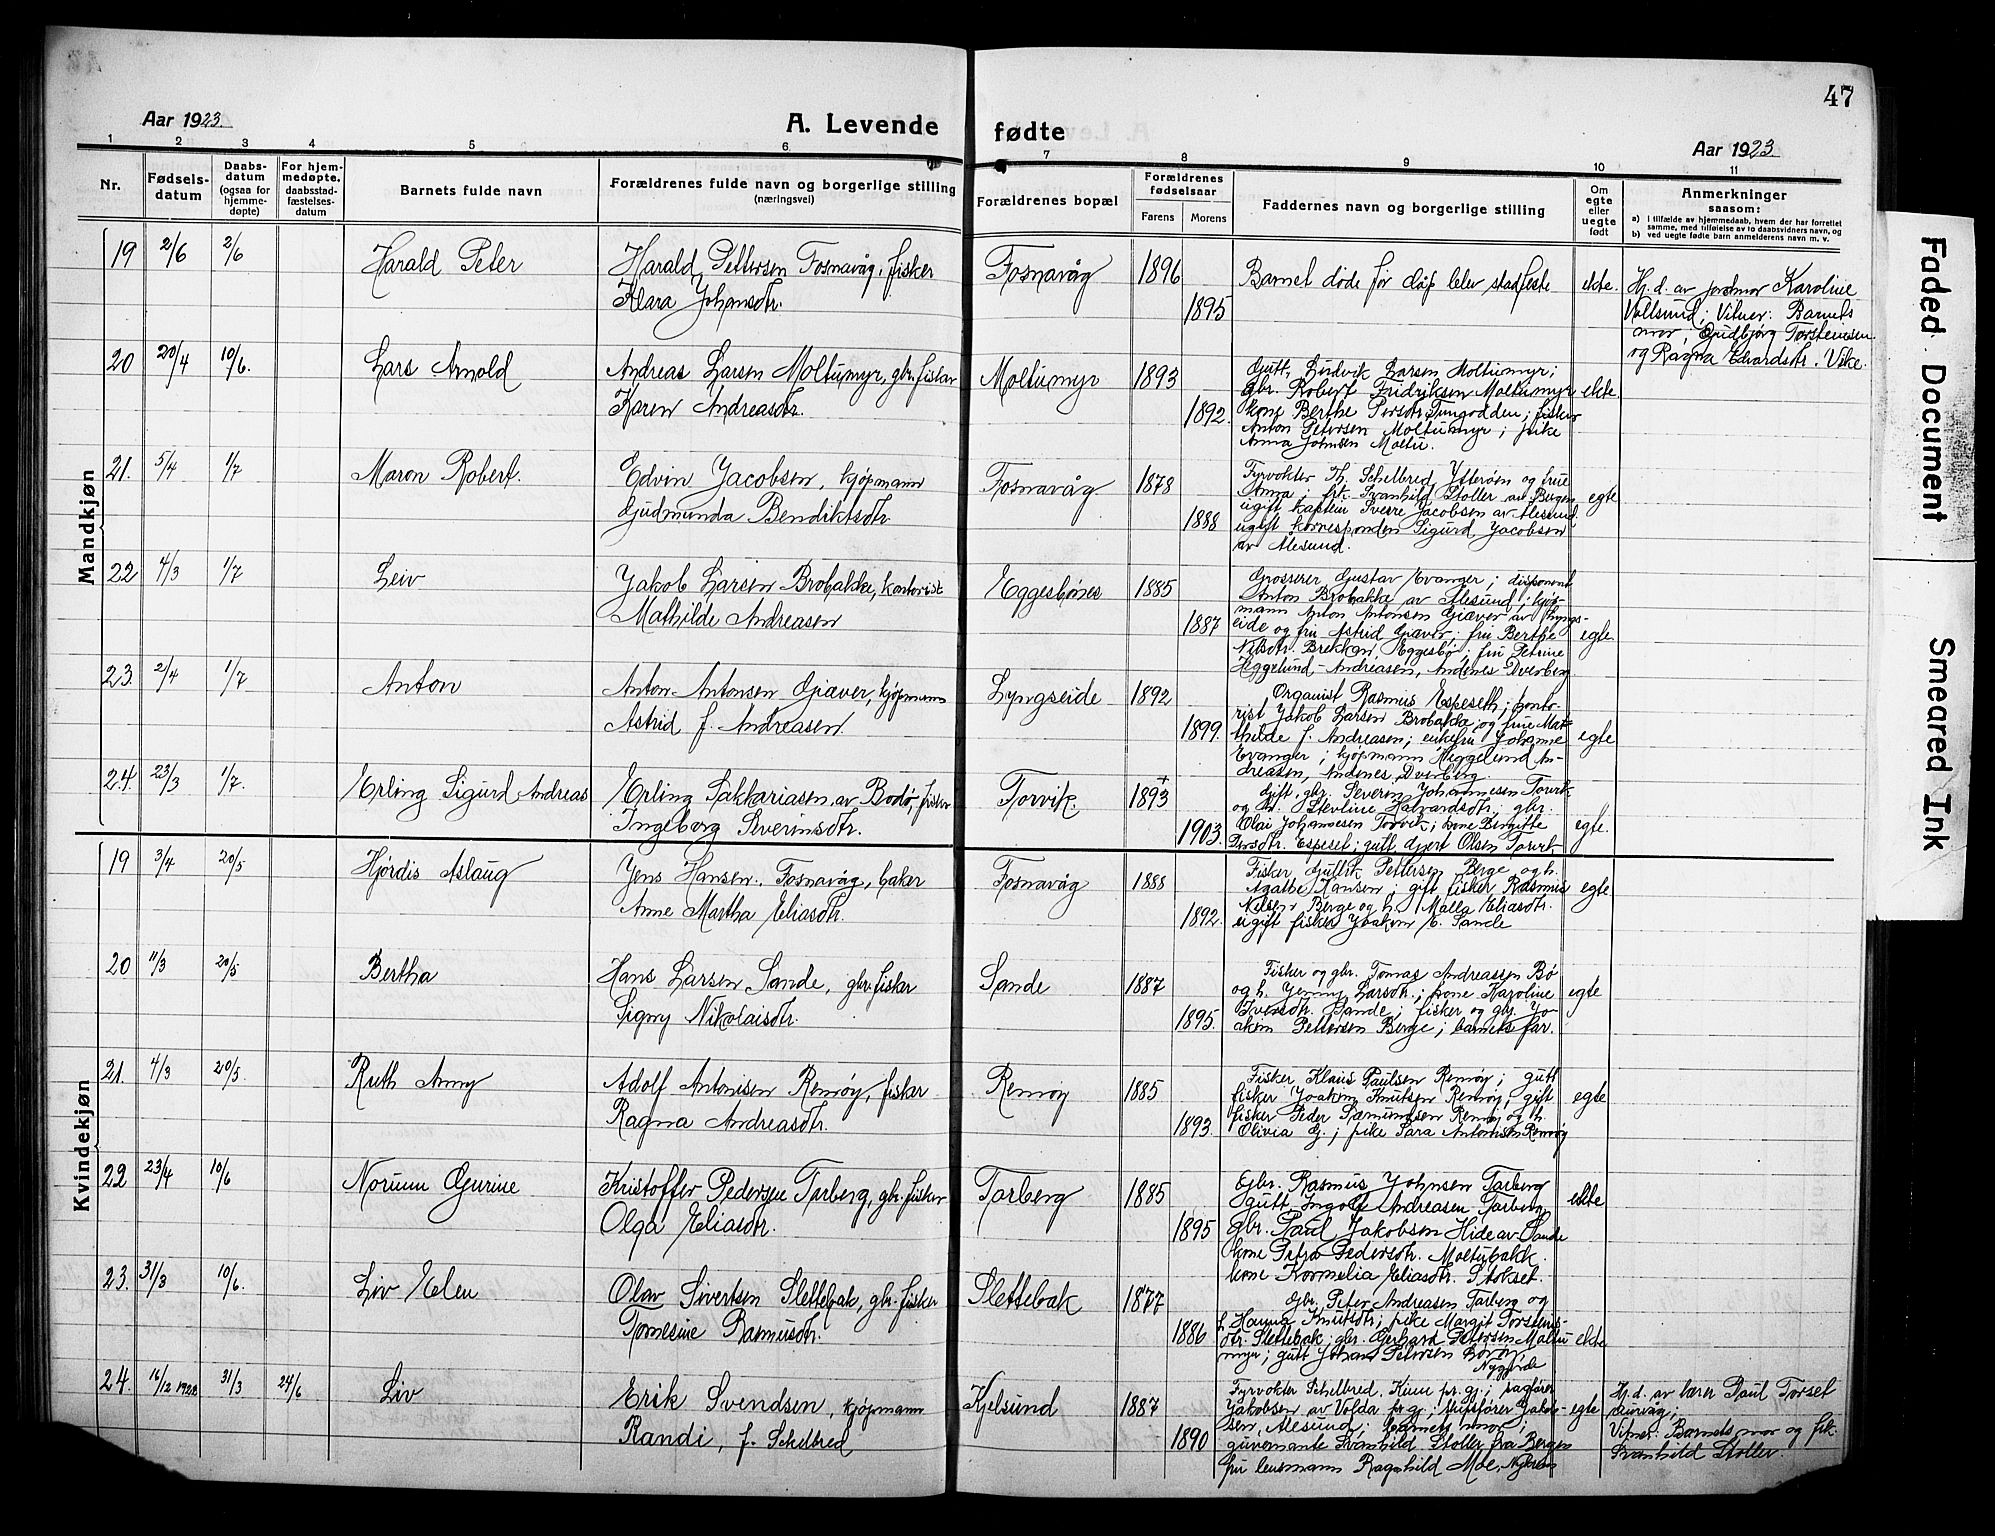 47
Aar 1923.
A. Levende
fødte
Aar 1923.
1 2 3 4 5 6 7 8 9 10 11
Nr.
Fødsels-
datum
Daabs-
datum
(ogsaa for
hjemme-
døpte)
For hjem-
medøpte.
daabsstad-
fæstelses-
datum
Barnets fulde navn
Forældrenes fulde navn og borgerlige stilling
(næringsvei)
Forældrenes bopæl
Forældrenes
fødselsaar
Farens
Morens
Faddernes navn og borgerlige stilling
Om
egte
eller
uegte
født
Anmerkninger
saasom:
a) i tilfælde av hjemmedaab, hvem der har forrettet
samme, med tilføielse av to daabsvidners navn, og
b) ved uegte fødte barn anmelderens navn m. v.
Mandkjøn
19 2/6 2/6 Harald Peter
Harald Pettersen Fosnavåg, fisker
Klara Johansdtr.
Fosnavåg 1896
1895
Barnet døde før dåp blev stadfeste
ekte.
Hj. d. av jordmor Karoline
Voldsund; Vitner: Barnets
mor, Gudbjørg Torsteinsen
og Ragna Edvardsdtr. Vike.
20 20/4 10/6. Lars Arnold
Andreas Larsen Moltumyr, gbr. fisker
Karen Andreasdtr.
Moltumyr 1893
1892.
Gutt, Ludvik Larsen Moltumyr;
gbr. Robert Fridriksen Moltumyr
kone Berthe Persdtr. Tungodden; fisker
Anton Petersen Moltumyr; pike
Anna Johnsen Moltu.
ekte
21. 5/4 1/7 Maron Robert.
Edvin Jacobsen, kjøpmann
Gudmunda Bendiktsdtr.
Fosnavåg 1878
1888
Fyrvokter Th. Schelbred Ytterøen og frue
Anna; frk. Svanhild Stoller av Bergen
ugift kaptein Sverre Jacobsen av Ålesund
ugift korresponden Sigurd Jacobsen
av Ålesund.
egte
22 4/3 1/7 Leiv
Jakob Larsen Brobakke, kontorist
Mathilde Andreasen
Eggesbønes 1885
1887
Grosserer Gustav Evanger; disponent
Anton Brobakke av Ålesund; kjøp-
mann Anton Antonsen Giæver av Lyngs-
eide og fru Astrid Giæver; fru Berthe
Nilsdtr. Brekkan Eggesbø; fru Petrine
Heggelund-Andreasen, Andenes Dverberg
egte
23. 2/4 1/7 Anton
Anton Antonsen Giæver, kjøpmann
Astrid f. Andreasen.
Lyngseide 1892
1899.
Organist Rasmus Espeseth; konto-
rist Jakob Larsen Brobakke og frue Mat-
hilde f. Andreasen; enkefru Johanne
Evanger; kjøpmann Heggelund An-
dreasen, Andenes, Dverberg.
egte
24. 23/3 1/7. Erling Sigurd Andreas
Erling Sakkariasen av Bodø, fisker
Ingeborg Severinsdtr.
Torvik. 1893
1903.
Gift, gbr. Severin Johannesen Torvik
og h. Stevline Halvardsdtr; gbr.
Olai Johansen Torvik; kone Bergitte
Persdtr. Espeset; gutt Gjert Olsen Torvik
egte.
Kvindekjøn
19 3/4 20/5 Hjørdis Aslaug
Jens Hansen, Fosnavåg, baker
Anne Martha Eliasdtr.
Fosnavåg 1888
1892.
Fisker Guttrk Pettersen Berge og h.
Agathe Hansen; gift fisker Rasmus
Nilsen Berge og h. Malla Eliasdtr.
ugift fisker Joakim E. Sande
egte
20 11/3 20/5 Bertha
Hans Larsen Sande, gbr. fisker
Signy Nikolaisdtr.
Sande 1887
1895.
Fisker og gbr. Tomas Andreassen Bø
og h. Jenny Larsdtr.; kone Karoline
Iversdtr. Sande; fisker og gbr. Jo-
akim Pettersen Berge; barnets far.
egte
21. 4/3 20/5. Ruth Anny
Adolf Antonisen Remøy, fisker
Ragna Andreasdtr.
Remøy 1885
1893.
Fisker Klaus Paulsen Remøy; gutt
fisker Joakim Knutsen Remøy; gift
fisker Peder Sæmundsen Remøy og h.
Olivia G.; pike Sara Antonisen Remøy
egte
22 23/4 10/6 Norunn Gurine
Kristoffer Pedersen Tarberg, gbr. fisker
Olga Eliasdtr.
Tarberg 1885
1895
Gbr. Rasmus Johnsen Tarberg
gutt Ingolf Andreasen Tarberg
gbr. Paul Jakobsen Hide av Sande
kone Petra Pedersdtr. Moltubakk.
kone Kornelia Eliasdtr. Stokset.
ekte
23. 31/3 10/6. Liv Elen
Olav Sivertsen Slettebak, gbr. fisker
Tomesine Rasmusdtr.
Slettebak 1877
1886
Gbr. Peter Andreasen Tarberg og
h Hanna Knutsdtr; pike Margit Torsteins-
dtr. Slettebak; gbr. Gerhard Petersen Moltu
myr; gutt Johan Petersen Børøy,
Nygjerde
ekte
24. 16/12 1922 31/3 24/6 Liv
Erik Svendsen, kjøpmann
Randi, f. Schelbred
Kjelsund 1887
1890
Fyrvokter Schelbred. Kinn pr. gj.; sagfører
Jakobsen av Volda pr. gj.; skibsfører Jakob-
sen, Ålesund; barnets mor;
guvernante Svanhild Stoller fra Bergen
fru lensmann Ragnhild Moe,
egte
Hj. d. av lærer Paul Torset
Aurvåg;
Vitner: Barnets mor og frk.
Svanhild Stoller.
Faded Document
Smeared Ink